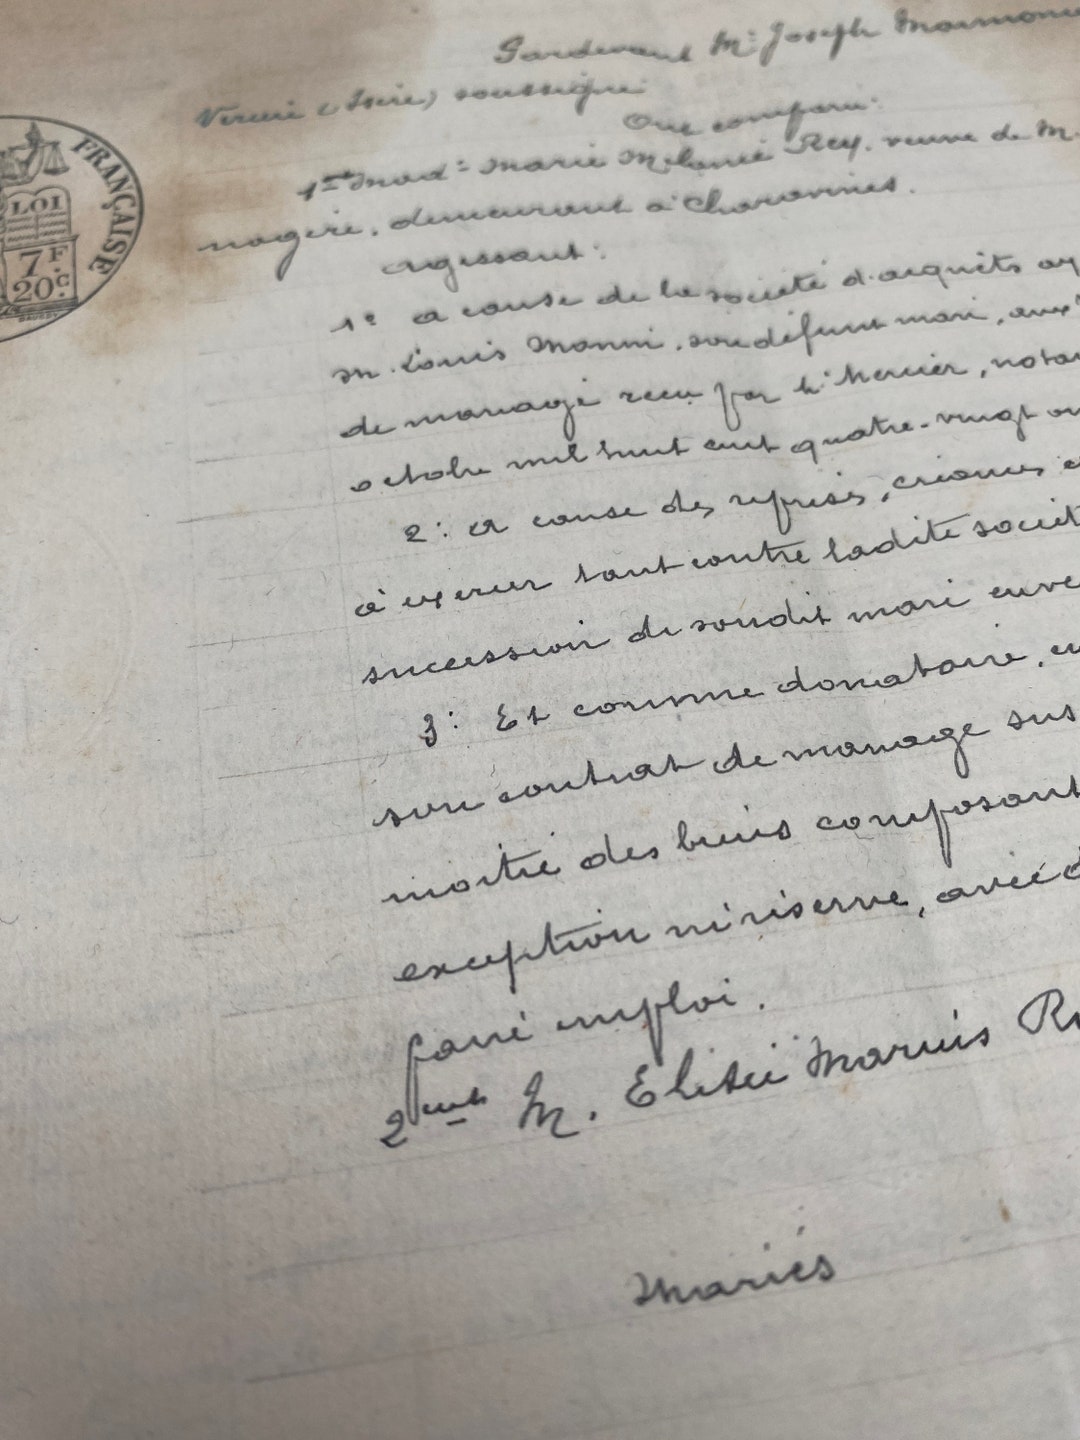 Pardevant Mᵉ Joseph
Virieu (Isère) soussigné
Ont comparu:
1ᵉⁿᵗ Madᵉ Marie Mélanie Rey, veuve de M.
FRANÇAISE
LOI
7F.
20C.
nagère, demeurant à Charavines.
agissant:
1º a cause de la société d'acquêts
M. Louis Monin, son défunt mari, aux
de mariage reçu par Mᵉ Mercier, notai
octobre mil huit cent quatre-vingt
2: a cause des reprises, créances
à exercer tant contre ladite sociét
succession de sondit mari
3: Et comme donataire, en
son contrat de mariage sus
moitié des biens composant
exception ni réserve, avec
faire emploi.
2ᵉⁿᵗ M. Elisée Marius
Mariés